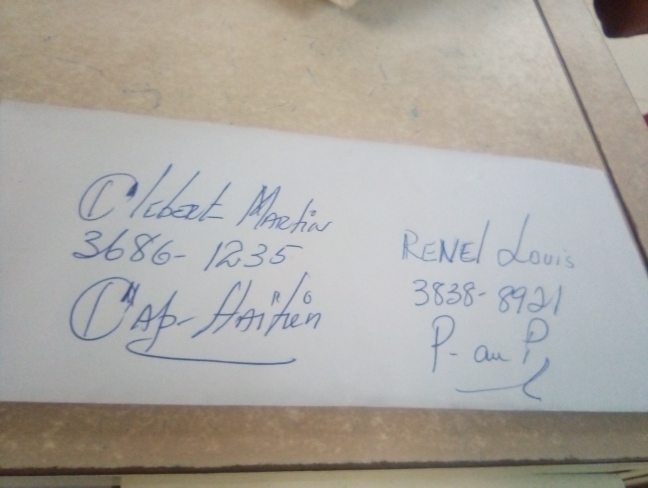 Clebert Martin
3686-1235
Cap-Haïtien
RENEl Louis
3838-8921
P-au P